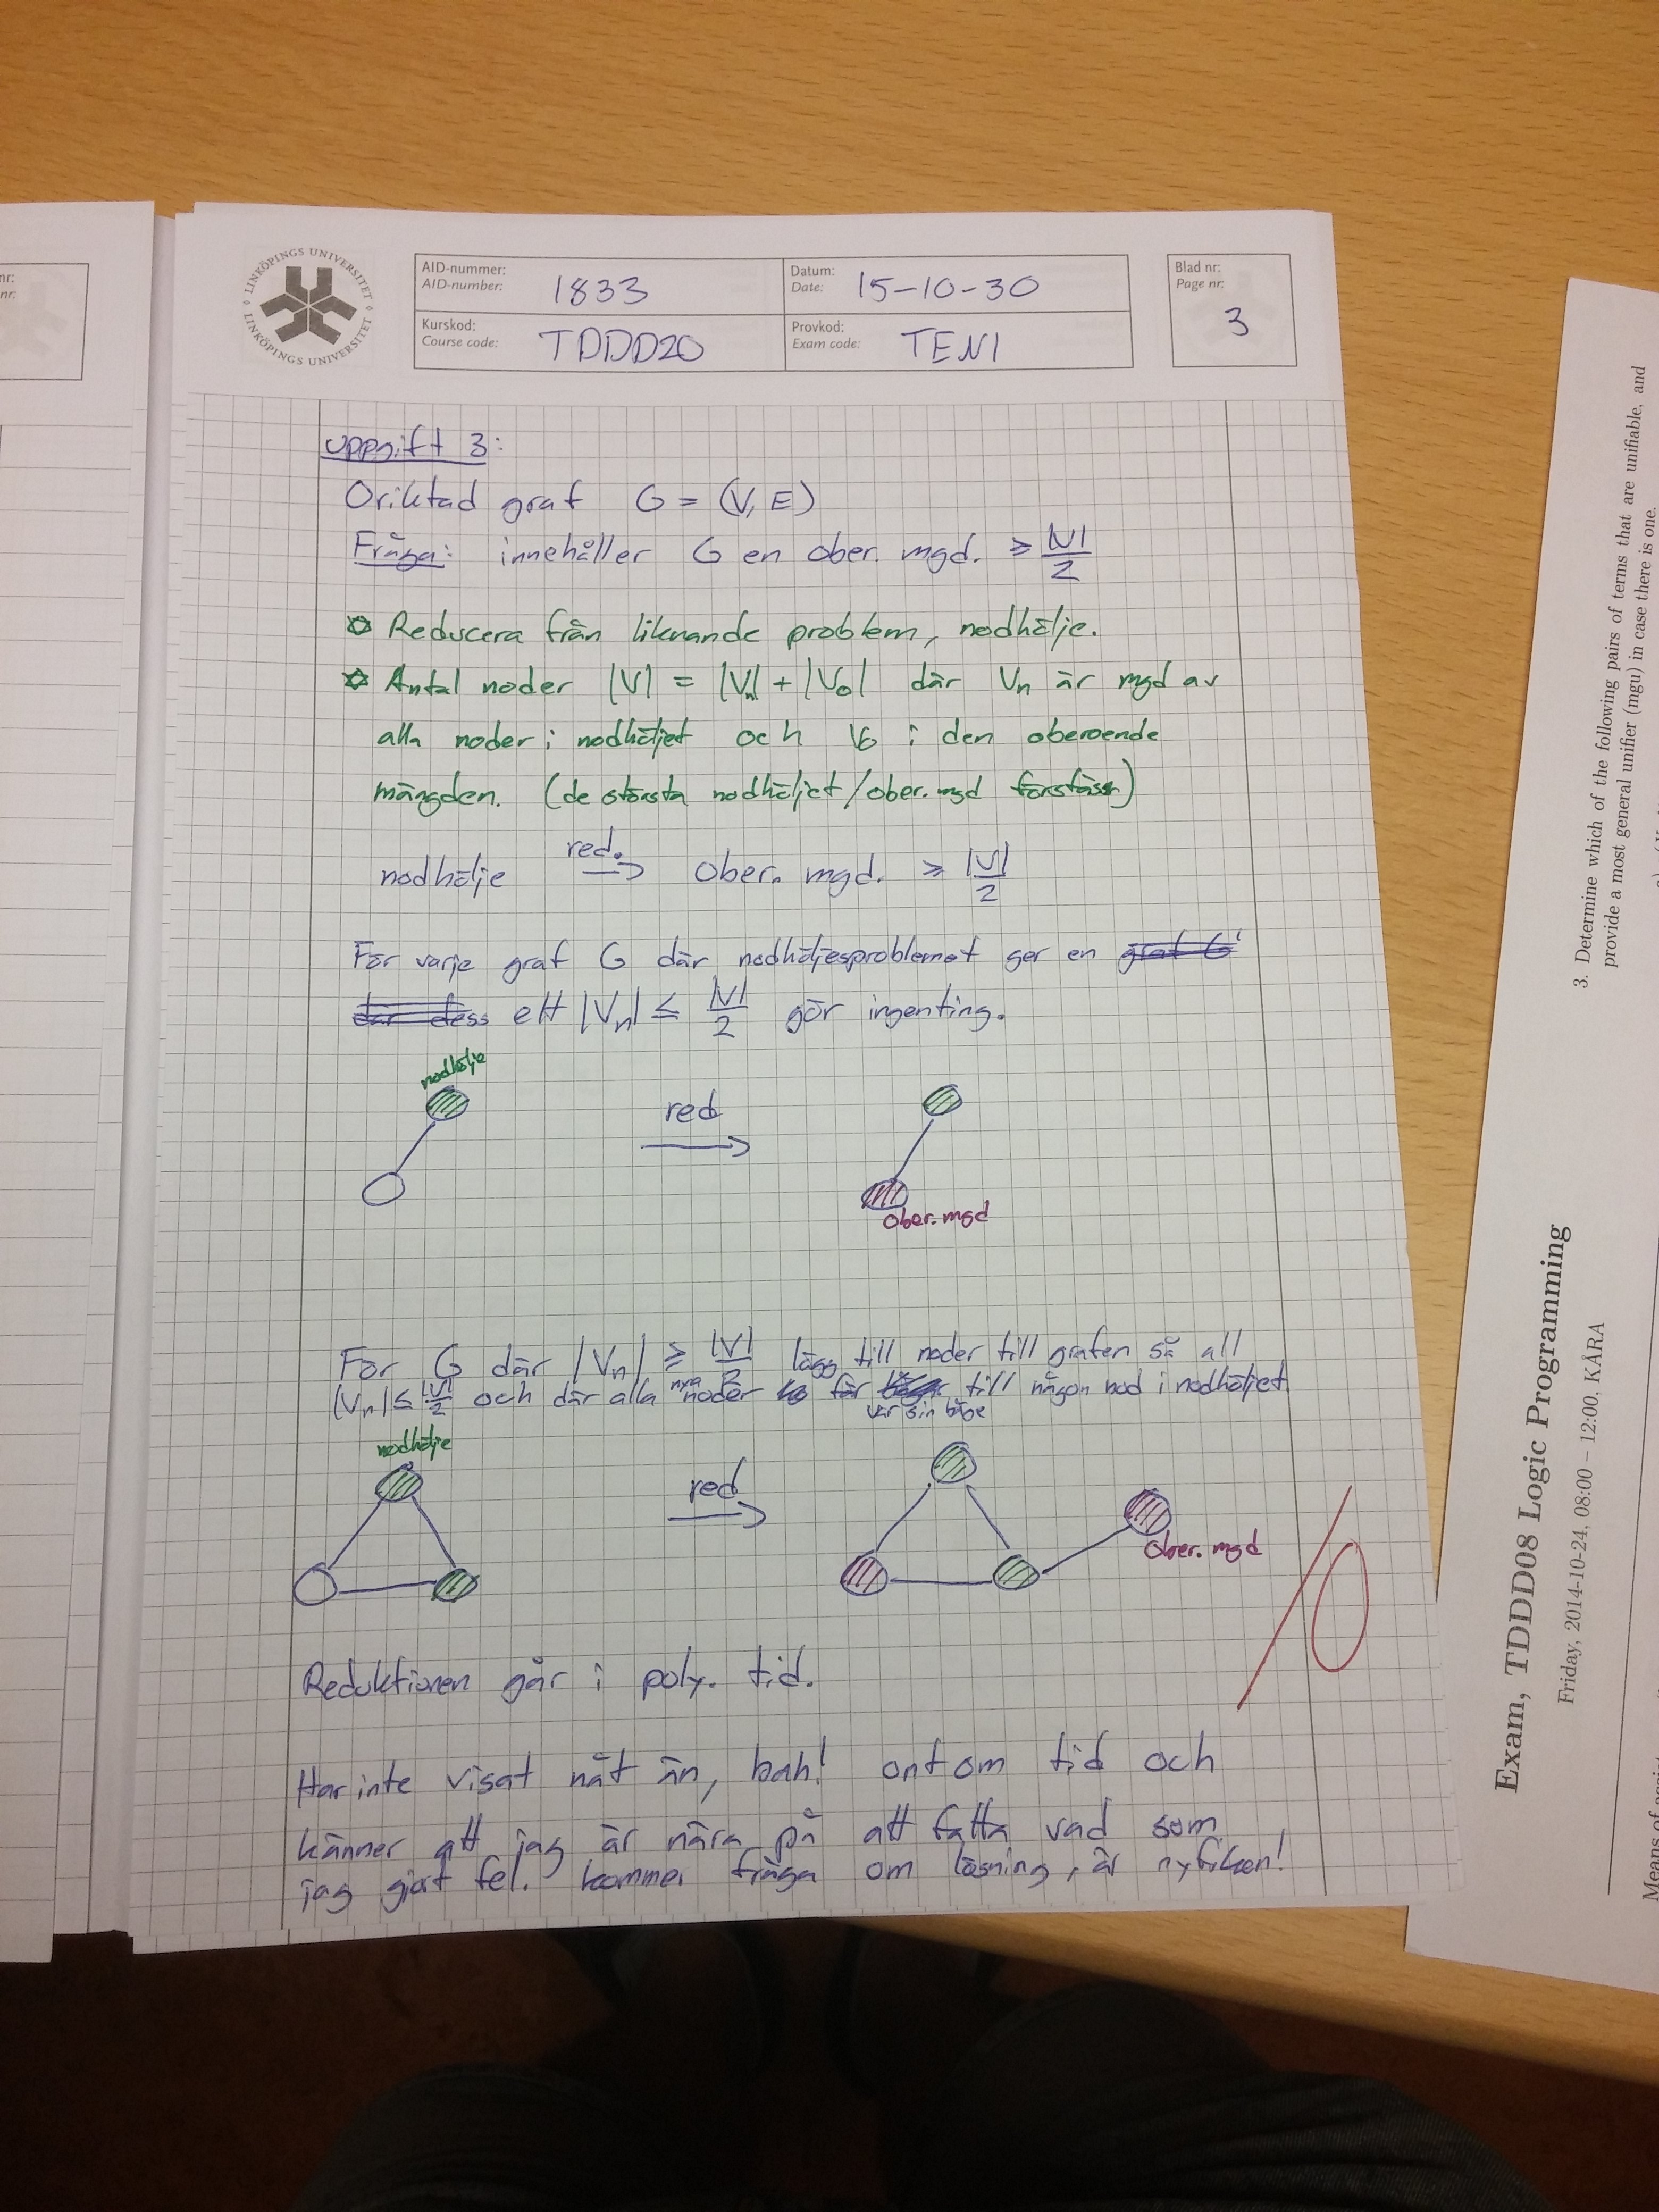 nr:
nr:
LINKÖPINGS UNIVERSITET
LINKÖPINGS UNIVERSITET
AID-nummer:
AID-number:
1833
Datum:
Date:
15-10-30
Blad nr:
Page nr:
3
Kurskod:
Course code:
TDDD20
Provkod:
Exam code:
TEN1
uppgift 3:
Oriktad graf G = (V, E)
Fråga: innehåller G en ober. mgd. ≥ |V|/2
✡ Reducera från liknande problem, nodhölje.
✡ Antal noder |V| = |Vn| + |Vo| där Vn är mgd av
alla noder i nodhöljet och Vo i den oberoende
mängden. (de största nodhöljet/ober. mgd förstås)
nodhölje red. → Ober. mgd. ≥ |V|/2
För varje graf G där nodhöljesproblemet ger en graf G'
där dess ett |Vn| ≤ |V|/2 gör ingenting.
nodhölje
red
ober. mgd
För G där |Vn| ≥ |V|/2 lägg till noder till grafen så all
|Vn| ≤ |V|/2 och där alla nya noder får till någon nod i nodhöljet.
var sin båge
nodhölje
red
Ober. mgd
Reduktionen går i poly. tid.
/0
Har inte visat nåt än, bah! ont om tid och
känner att jag är nära på att fatta vad som
jag gjort fel. kommer fråga om lösning, är nyfiken!
3. Determine which of the following pairs of terms that are unifiable, and
provide a most general unifier (mgu) in case there is one.
Exam, TDDD08 Logic Programming
Friday, 2014-10-24, 08:00 – 12:00, KÅRA
Means of